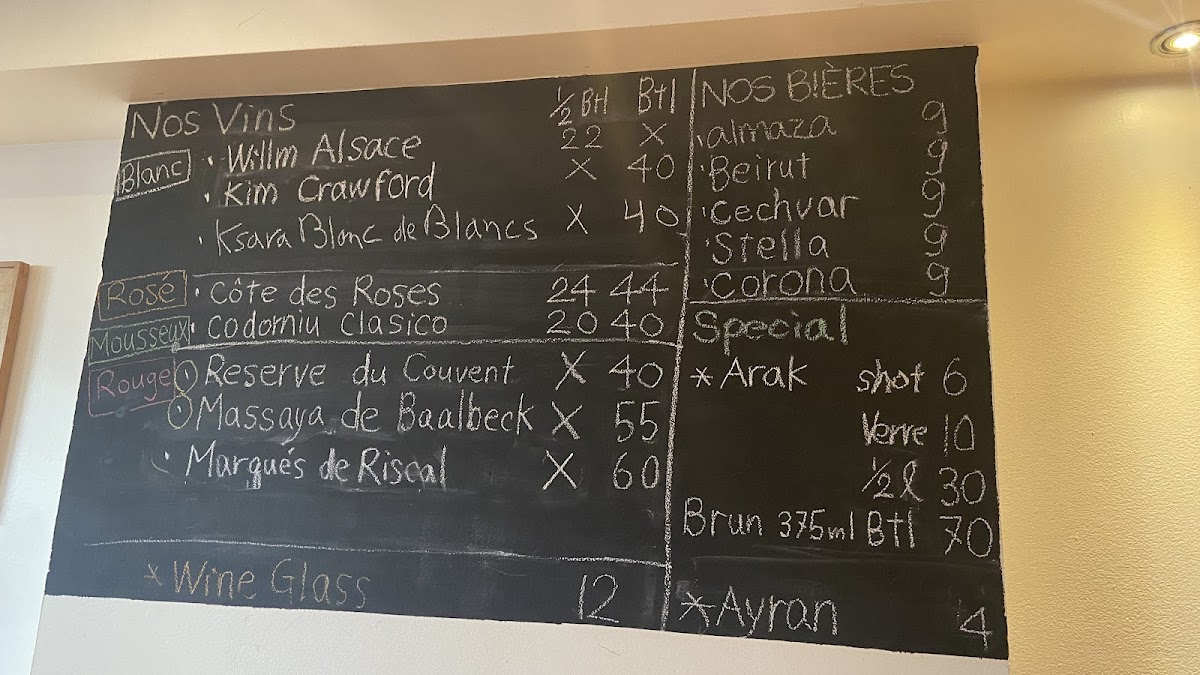 Nos Vins ½ Btl Btl
Blanc · Willm Alsace 22 X
· Kim Crawford X 40
· Ksara Blanc de Blancs X 40
Rosé · Côte des Roses 24 44
Mousseux · Codorniu Clasico 20 40
Rouge · Reserve du Couvent X 40
· Massaya de Baalbeck X 55
· Marqués de Riscal X 60
* Wine Glass 12
NOS BIÈRES
· almaza 9
· Beirut 9
· Cechvar 9
· Stella 9
· Corona 9
Special
* Arak shot 6
Verre 10
½ l 30
Brun 375ml Btl 70
* Ayran 4